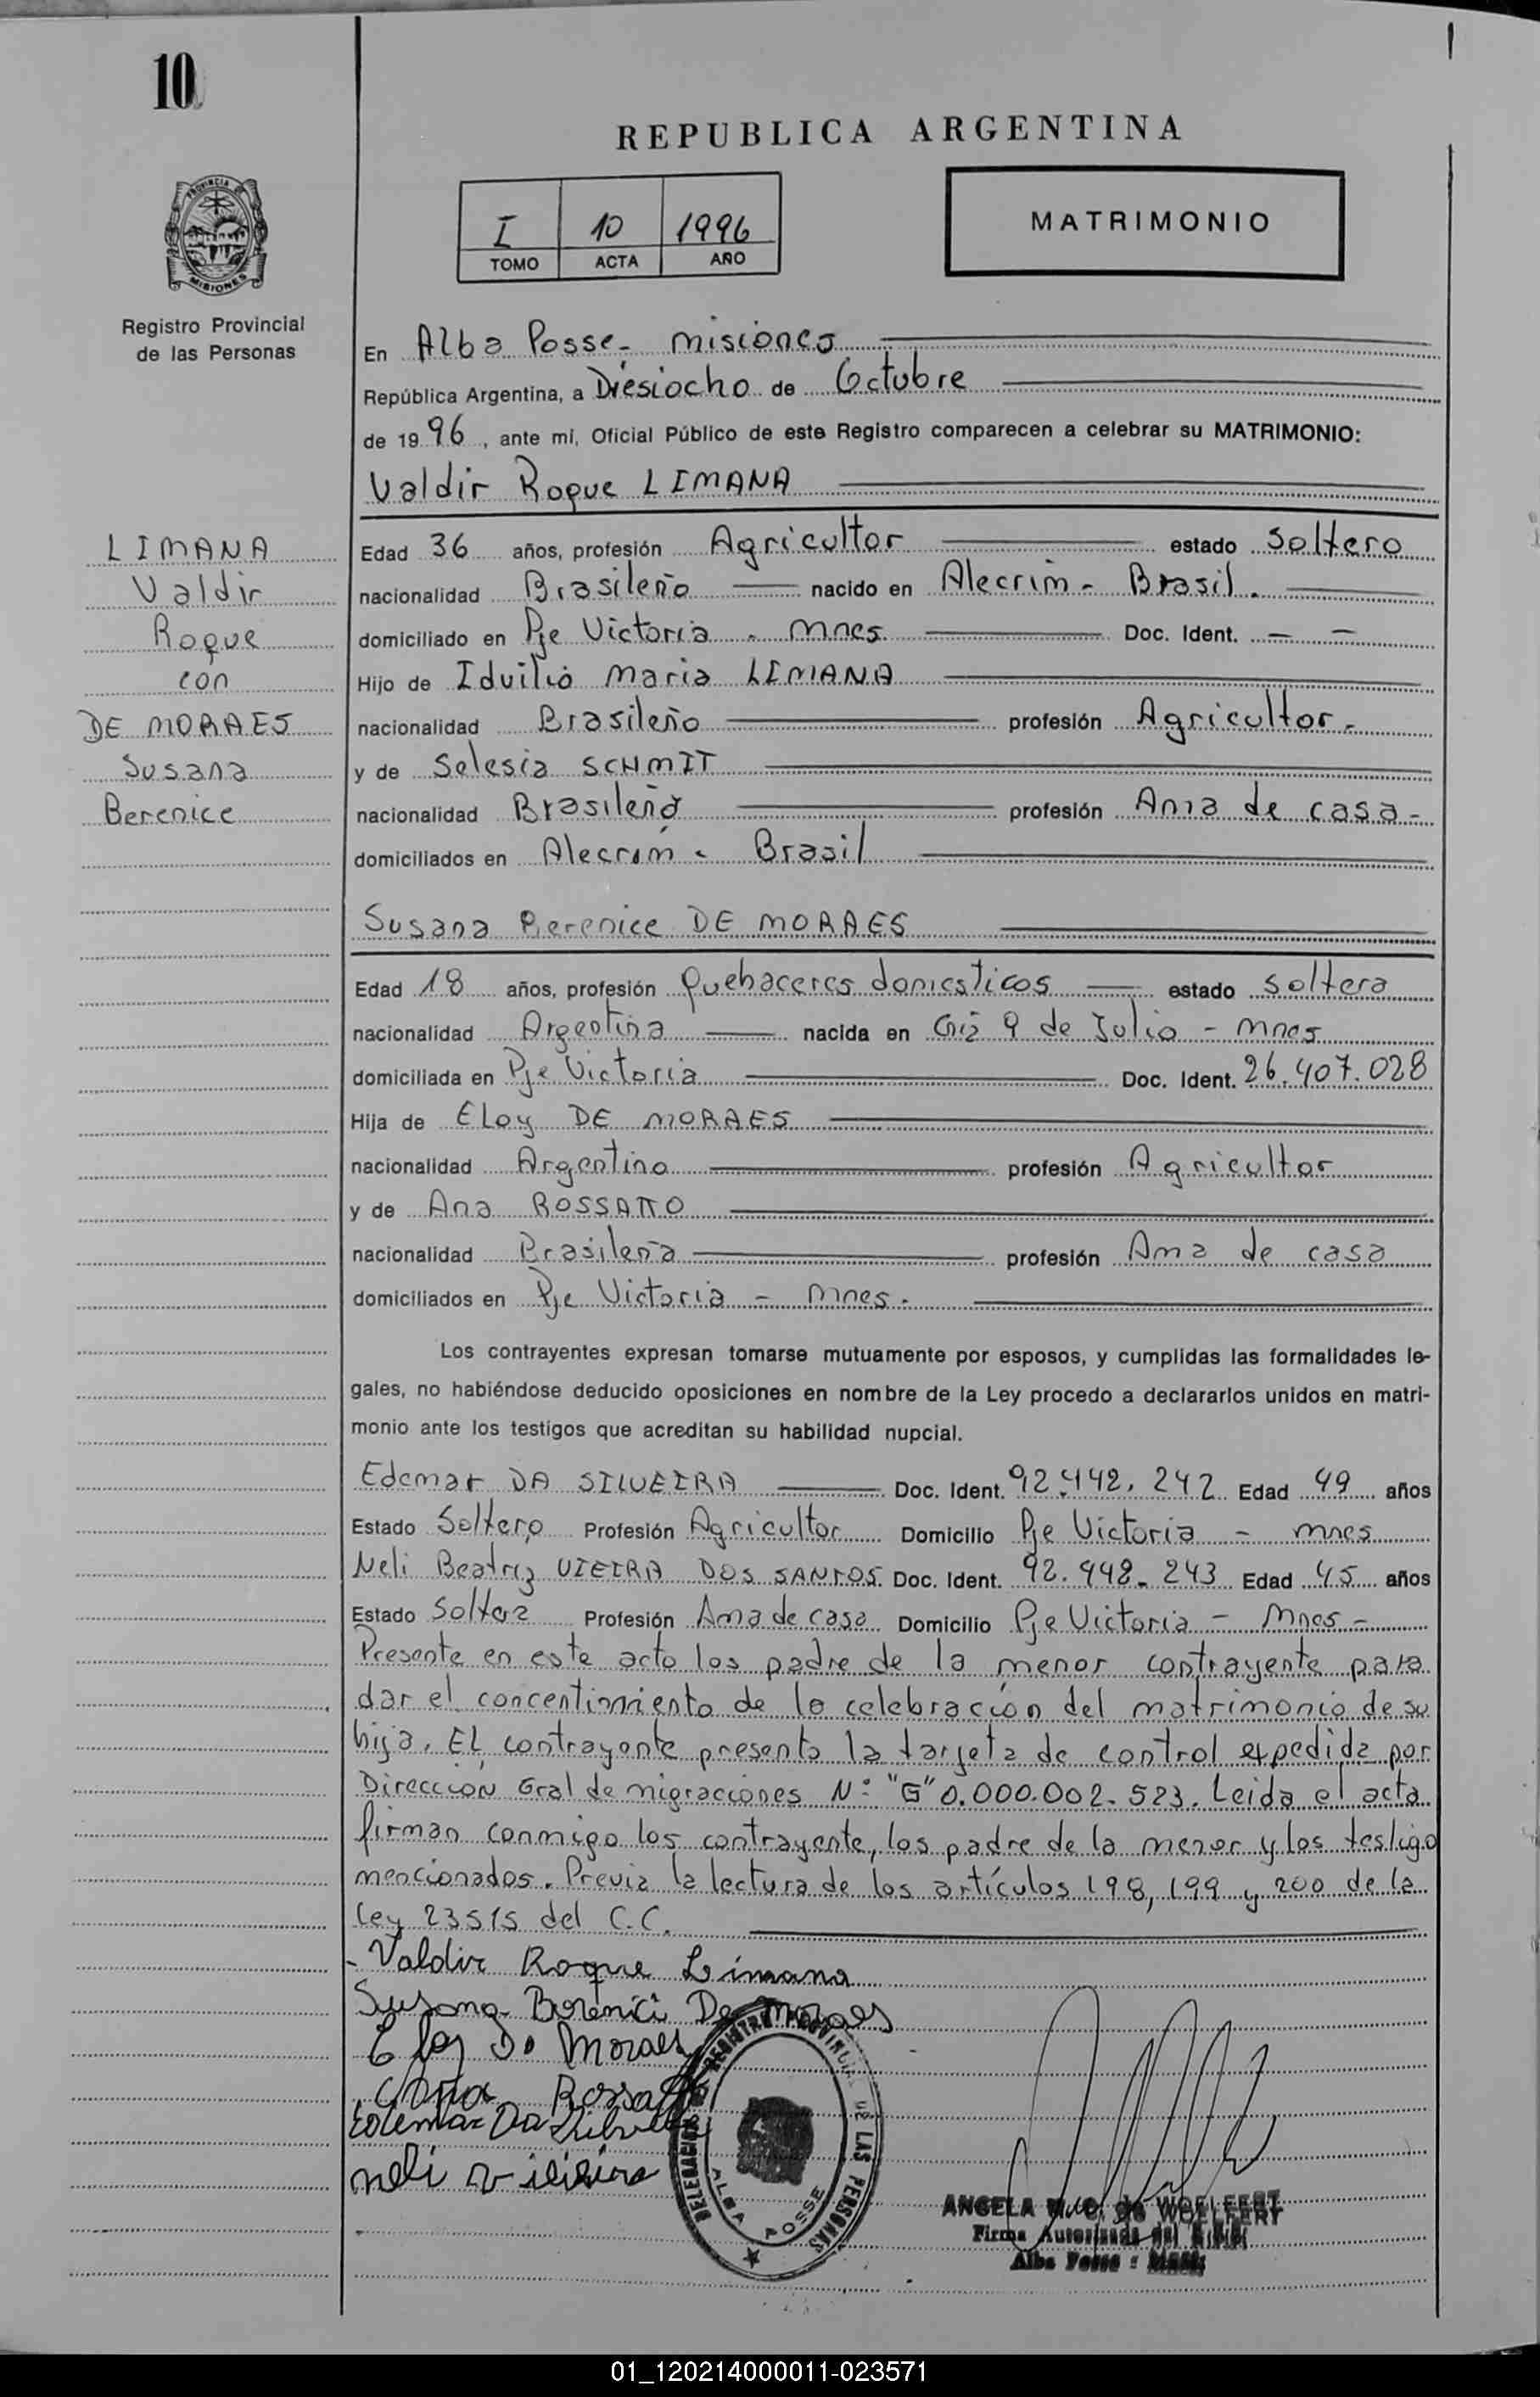 10
REPUBLICA ARGENTINA
PROVINCIA DE
MISIONES
Registro Provincial
de las Personas
I 10 1996
TOMO ACTA AÑO
MATRIMONIO
En Alba Posse - misiones
República Argentina, a Diesiocho de Octubre
de 1996, ante mí, Oficial Público de este Registro comparecen a celebrar su MATRIMONIO:
Valdir Roque LIMANA
LIMANA
Valdir
Roque
con
DE MORAES
Susana
Berenice
Edad 36 años, profesión Agricultor estado Soltero
nacionalidad Brasileño nacido en Alecrim - Brasil.
domiciliado en Pje Victoria - mnes Doc. Ident. — —
Hijo de Iduilio maria LIMANA
nacionalidad Brasileño profesión Agricultor -
y de Selesia SCHMIT
nacionalidad Brasileña profesión Ama de casa -
domiciliados en Alecrim - Brasil
Susana Berenice DE MORAES
Edad 18 años, profesión Quehaceres domesticos estado soltera
nacionalidad Argentina nacida en 9 de Julio - mnes
domiciliada en Pje Victoria Doc. Ident. 26.407.028
Hija de ELoy DE MORAES
nacionalidad Argentino profesión Agricultor
y de Ana ROSSATTO
nacionalidad Brasileña profesión Ama de casa
domiciliados en Pje Victoria - mnes.
Los contrayentes expresan tomarse mutuamente por esposos, y cumplidas las formalidades le-
gales, no habiéndose deducido oposiciones en nombre de la Ley procedo a declararlos unidos en matri-
monio ante los testigos que acreditan su habilidad nupcial.
Edemar DA SILVEIRA Doc. Ident. 92.442.242 Edad 49 años
Estado Soltero Profesión Agricultor Domicilio Pje Victoria - mnes
Neli Beatriz VIEIRA DOS SANTOS Doc. Ident. 92.442.243 Edad 45 años
Estado Soltera Profesión Ama de casa Domicilio Pje Victoria - Mnes -
Presente en este acto los padre de la menor contrayente para
dar el concentimiento de la celebración del matrimonio de su
hija. EL contrayente presenta la tarjeta de control expedida por
Dirección Gral de migraciones N° "G" 0.000.002.523. Leida el acta
firman conmigo los contrayente, los padre de la menor y los testigo
mencionados. Previa la lectura de los artículos 198, 199 y 200 de la
Ley 23515 del C.C.
- Valdir Roque Limana
Susana Berenici De Moraes
Eloy De Moraes
Ana Rossatto
Edemar Da Silveira
neli vieira
DELEGACION REGISTRO PROVINCIAL DE LAS PERSONAS
ALBA POSSE
ANGELA de WOELFERT
Firma Autorizada del
Alba Posse : Mnes
01_120214000011-023571